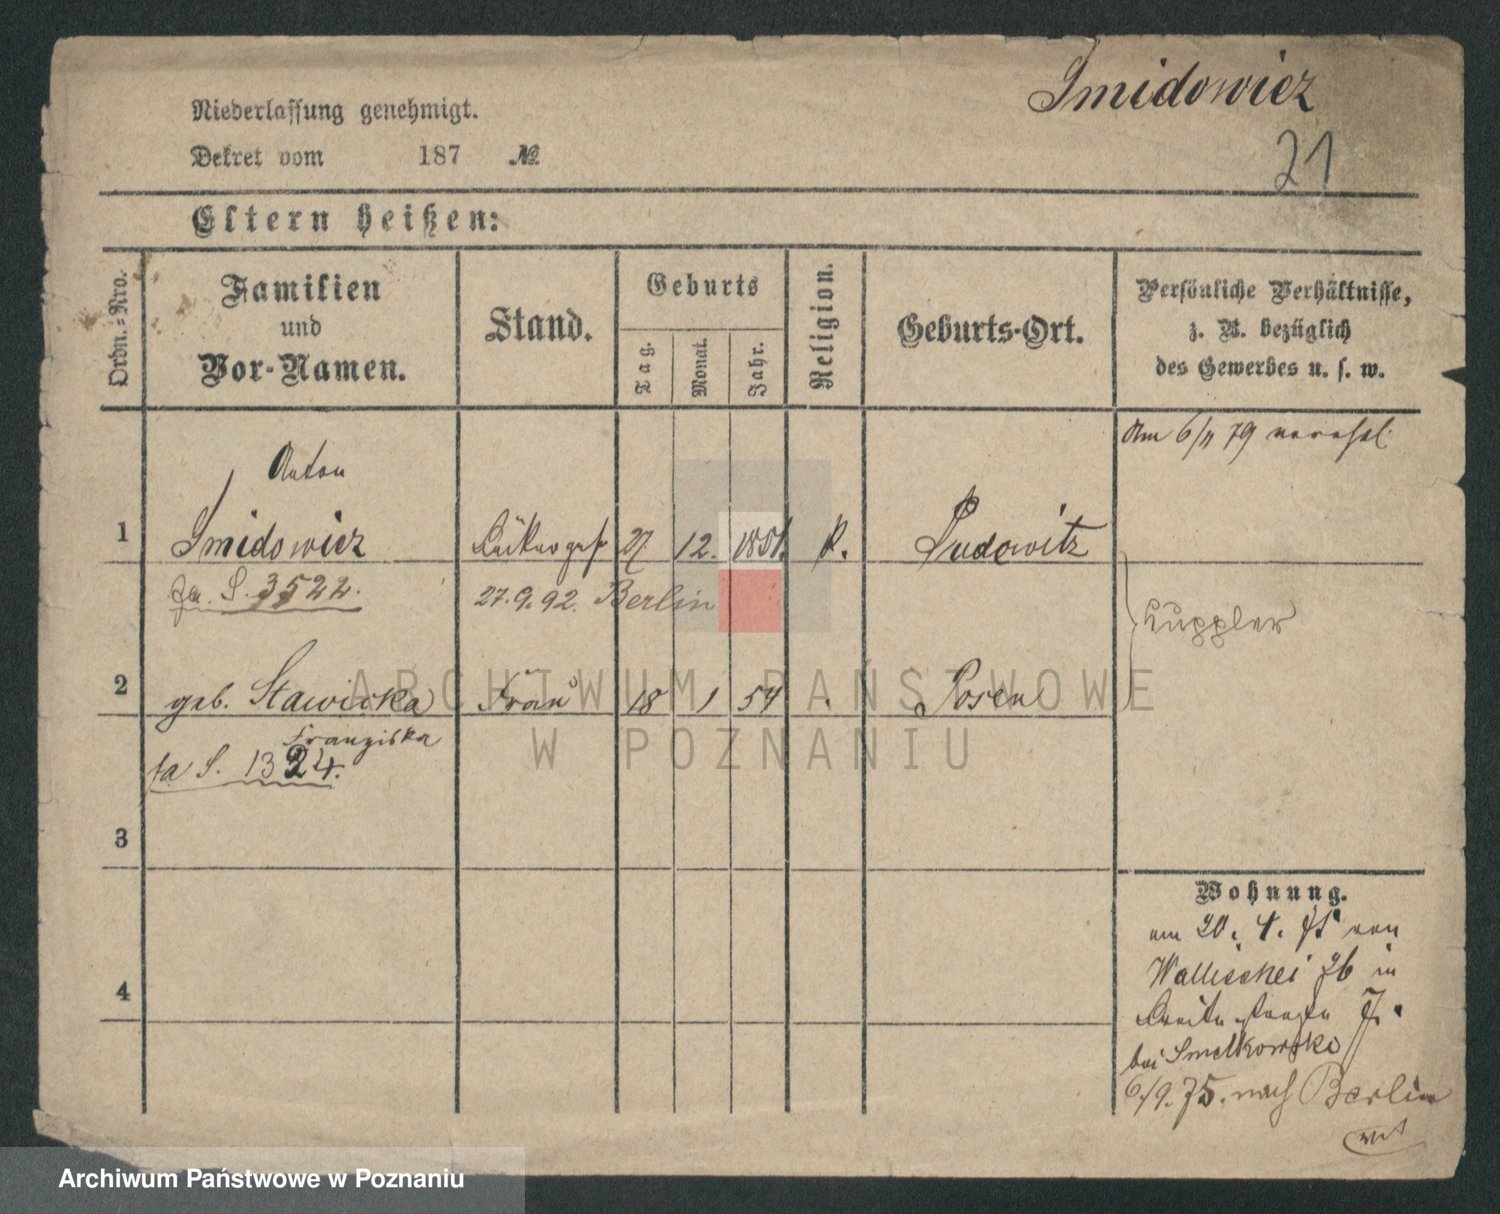 Smidowicz
21
Niederlassung genehmigt.
Dekret vom 187 №
Eltern heißen:
Ordn.=Nro.
Familien
und
Vor-Namen.
Stand.
Geburts
Tag.
Monat.
Jahr.
Religion.
Geburts-Ort.
Persönliche Verhältnisse,
z. B. bezüglich
des Gewerbes u. s. w.
Am 6/11 79 verehel.
Anton
1 Smidowicz 27. 12. 1851. k. Pudewitz
fa. S. 3522. 27.9.92. Berlin
2 geb. Stawicka Frau 18 1 54 Posen
Franziska
fa S. 1324.
3
4
Wohnung.
am 20. 4. von
Wallischei 76 in
bei Smelkowski
6/9.75. nach Berlin
ARCHIWUM PAŃSTWOWE
W POZNANIU
Archiwum Państwowe w Poznaniu